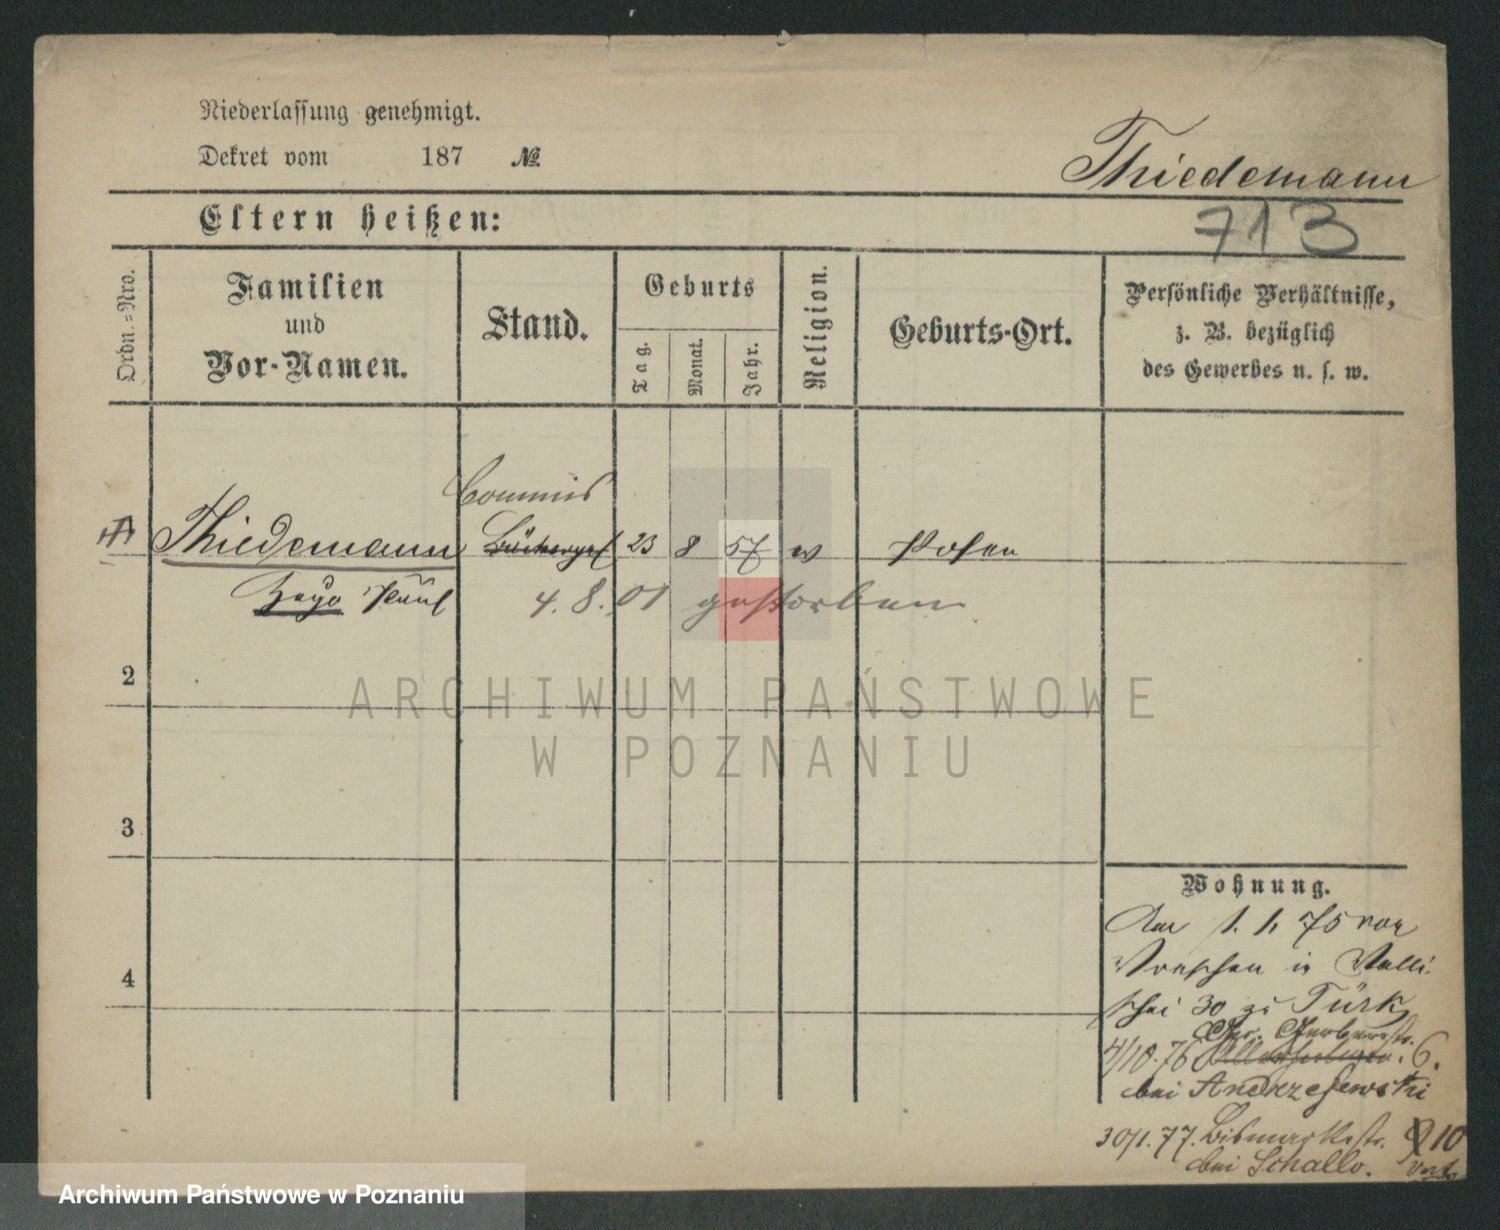 Niederlassung genehmigt.
Dekret vom 187 №
Thiedemann
713
Eltern heißen:
Ordn.-Nro.
Familien
und
Vor-Namen.
Stand.
Geburts
Tag.
Monat.
Jahr.
Religion.
Geburts-Ort.
Persönliche Verhältnisse,
z. B. bezüglich
des Gewerbes u. s. w.
Commis
Thiedemann 23 8 57 Posen
Paul 4. 8. 01 gestorben
2
ARCHIWUM PAŃSTWOWE
W POZNANIU
3
4
Wohnung.
Am 1. 1. 75 von
Wreschen in Walli
schei 30 zu Türk
Gr. Gerberstr.
4/10. 76 6.
bei Andrzejewski
30/1. 77. Bismarckstr. 10
bei Schallo.
Archiwum Państwowe w Poznaniu